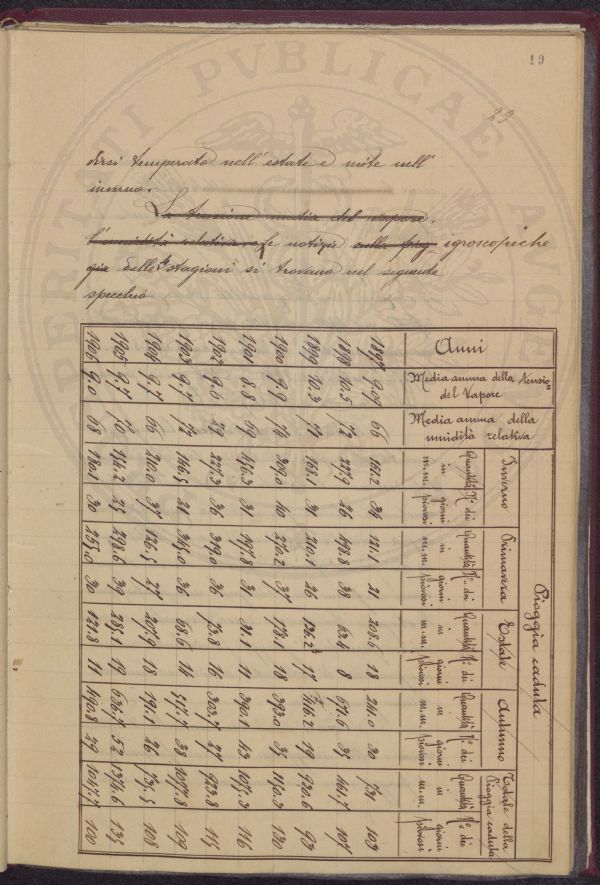 PERITATI PVBLICAE
19
29
dirsi temperato nell'estate e mite nell'
inverno.
La tensione media del vapore.
l'umidità relativa e le notizie sulla piog- igroscopiche
gia delle stagioni si trovano nel seguente
specchio
Pioggia caduta
Anni Media annua della tensione del Vapore Media annua della umidità relativa Inverno Primavera Estate Autunno Totale della Pioggia caduta
Quantità in m.m. N.º dei giorni piovosi Quantità in m.m. N.º dei giorni piovosi Quantità in m.m. N.º dei giorni piovosi Quantità in m.m. N.º dei giorni piovosi Quantità in m.m. N.º dei giorni piovosi
1897 9.09 66 161.2 34 121.1 21 208.6 18 241.0 30 731 103
1898 10.5 72 227.9 26 38 8 67.6 35 461.7 107
1899 10.3 71 168.1 31 210.1 26 136.2 17 416.2 19 930.6 93
1900 9.9 74 309.0 40 276.2 37 178.1 18 393.0 35 1156.3 130
1901 8.8 69 456.3 31 197.8 31 31.1 11 390.1 43 1075.3 116
1902 9.6 227.3 36 319.0 36 73.8 16 303.7 27 923.8 115
1903 9.7 72 146.5 21 345.0 36 68.6 14 517.7 38 1077.8 109
1904 9.7 66 210.0 37 126.5 27 207.9 18 191.1 26 735.5 108
1905 9.7 70 154.2 25 298.6 39 285.1 19 636.7 52 1374.6 135
1906 9.0 68 180.1 30 255.0 30 121.8 11 490.8 29 1047.7 100